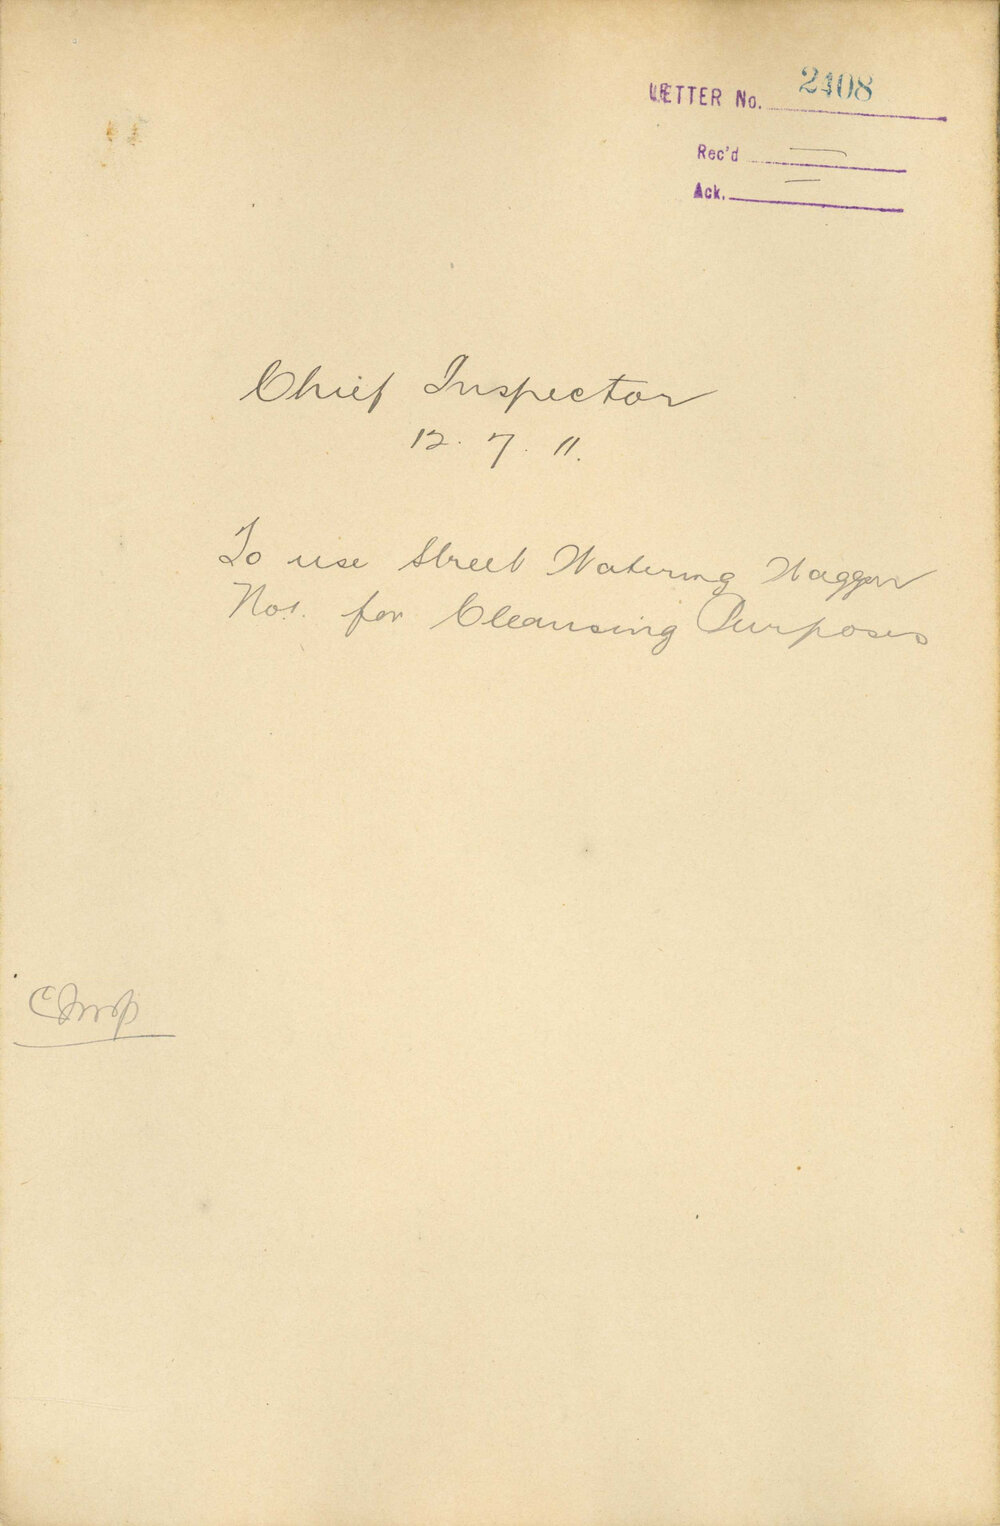 LETTER No. 2408
Rec'd —
Ack. —
Chief Inspector
12. 7. 11.
To use Street Watering Waggon
Nos. for Cleansing Purposes